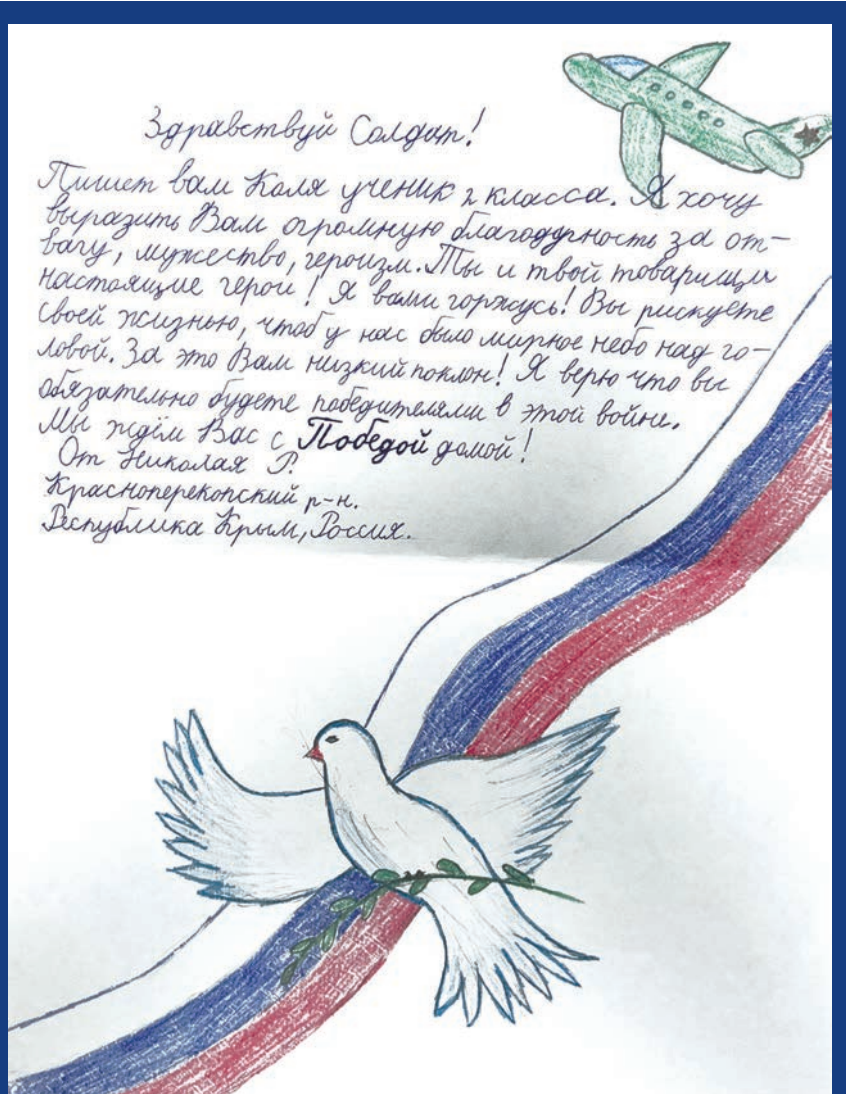 Здравствуй Солдат!
Пишет вам Коля ученик 2 класса. Я хочу
выразить Вам огромную благодарность за от-
вагу, мужество, героизм. Ты и твой товарищи
настоящие герои! Я вами горжусь! Вы рискуете
своей жизнью, чтоб у нас было мирное небо над го-
ловой. За это Вам низкий поклон! Я верю что вы
обязательно будете победителями в этой войне.
Мы ждём Вас с Победой домой!
От Николая Р.
Красноперекопский р-н.
Республика Крым, Россия.